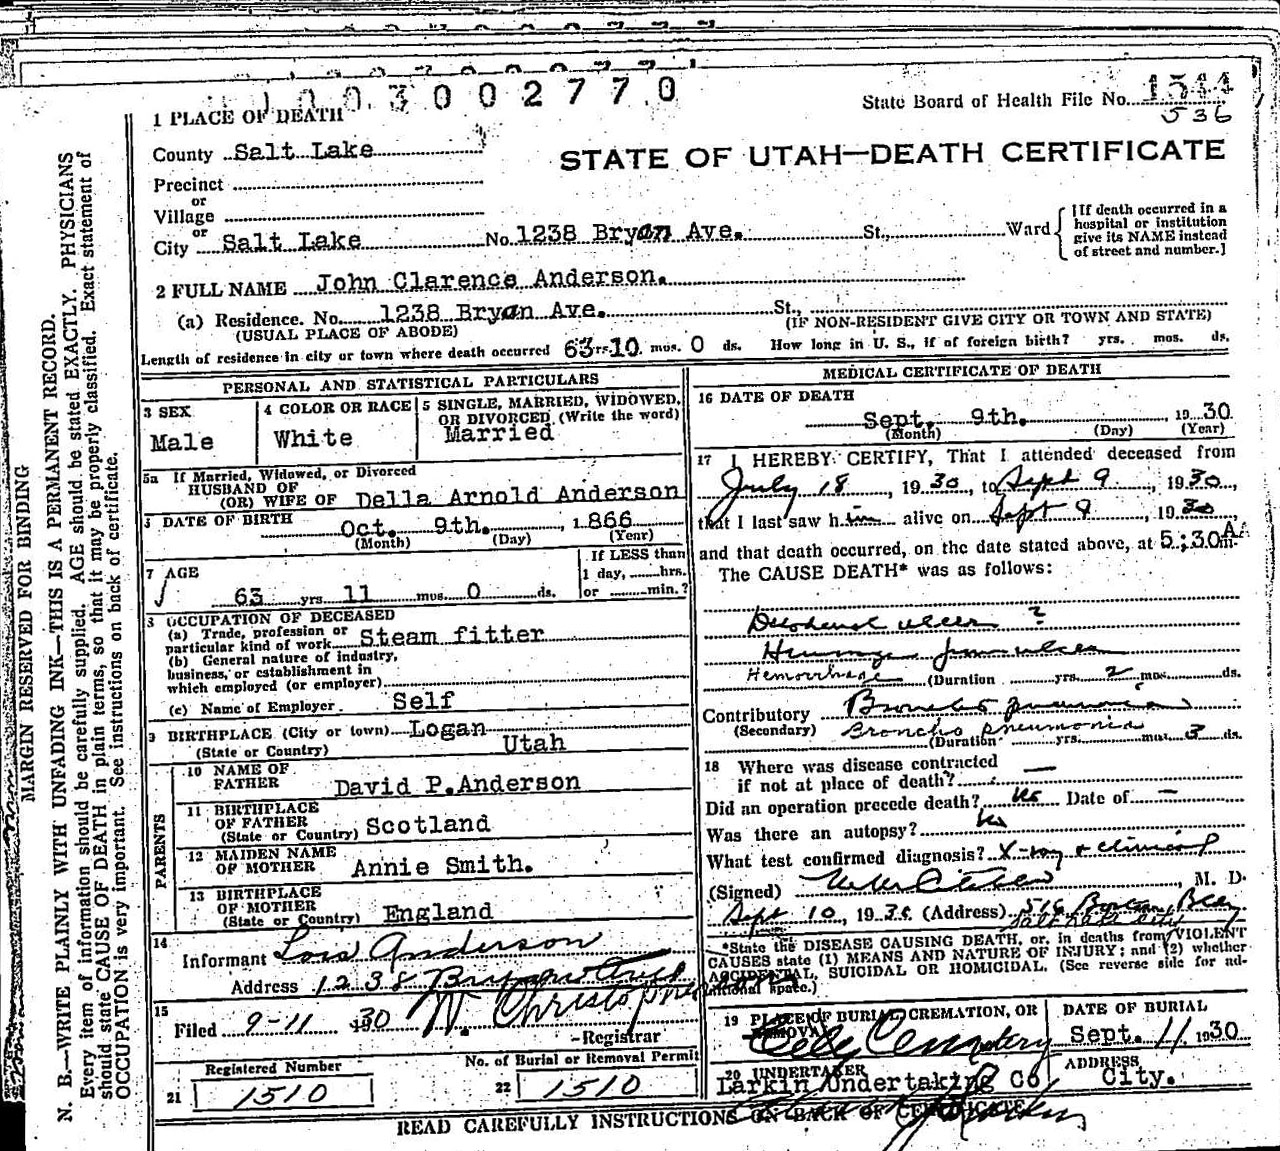 1003002770
State Board of Health File No. 1544
536
1 PLACE OF DEATH
County Salt Lake
STATE OF UTAH—DEATH CERTIFICATE
Precinct
or
Village
or
City Salt Lake No. 1238 Bryan Ave. St., Ward
[If death occurred in a
hospital or institution
give its NAME instead
of street and number.]
2 FULL NAME John Clarence Anderson.
(a) Residence. No. 1238 Bryan Ave. St.,
(USUAL PLACE OF ABODE) (IF NON-RESIDENT GIVE CITY OR TOWN AND STATE)
Length of residence in city or town where death occurred 63 yrs. 10 mos. 0 ds. How long in U. S., if of foreign birth? yrs. mos. ds.
PERSONAL AND STATISTICAL PARTICULARS
3 SEX
Male
4 COLOR OR RACE
White
5 SINGLE, MARRIED, WIDOWED,
OR DIVORCED (Write the word)
Married
5a If Married, Widowed, or Divorced
HUSBAND OF
(OR) WIFE OF Della Arnold Anderson
DATE OF BIRTH
Oct. 9th. , 1866
(Month) (Day) (Year)
7 AGE
63 yrs 11 mos 0 ds.
If LESS than
1 day, hrs.
or min.?
8 OCCUPATION OF DECEASED
(a) Trade, profession or
particular kind of work Steam fitter
(b) General nature of industry,
business, or establishment in
which employed (or employer)
(c) Name of Employer Self
9 BIRTHPLACE (City or town) Logan
(State or Country) Utah
PARENTS
10 NAME OF
FATHER David P. Anderson
11 BIRTHPLACE
OF FATHER
(State or Country) Scotland
12 MAIDEN NAME
OF MOTHER Annie Smith.
13 BIRTHPLACE
OF MOTHER
(State or Country) England
14
Informant Lois Anderson
Address 1238 Bryan Ave
15
Filed 9-11 1930 N. Christopherson
Registrar
Registered Number
21 1510
No. of Burial or Removal Permit
22 1510
MEDICAL CERTIFICATE OF DEATH
16 DATE OF DEATH
Sept. 9th. 1930
(Month) (Day) (Year)
17 I HEREBY CERTIFY, That I attended deceased from
July 18, 1930, to Sept 9, 1930,
that I last saw him alive on Sept 9, 1930,
and that death occurred, on the date stated above, at 5:30 A m.
The CAUSE DEATH* was as follows:
Duodenal ulcer ?
Hemorrhage from ulcer
Hemorrhage (Duration yrs. 2 mos. ds.
Contributory Broncho pneumonia
(Secondary) Broncho pneumonia
(Duration yrs. mos. 3 ds.
18 Where was disease contracted
if not at place of death? —
Did an operation precede death? No Date of —
Was there an autopsy? No
What test confirmed diagnosis? X-ray & clinical
(Signed) , M. D.
Sept 10, 1930 (Address) 516 Boston Bldg
Salt Lake City
*State the DISEASE CAUSING DEATH, or, in deaths from VIOLENT
CAUSES state (1) MEANS AND NATURE OF INJURY; and (2) whether
ACCIDENTAL, SUICIDAL OR HOMICIDAL. (See reverse side for ad-
ditional space.)
19 PLACE OF BURIAL, CREMATION, OR
REMOVAL
City Cemetery
DATE OF BURIAL
Sept. 11 1930
20 UNDERTAKER
Larkin Undertaking Co
ADDRESS
City.
READ CAREFULLY INSTRUCTIONS ON BACK OF CERTIFICATE
MARGIN RESERVED FOR BINDING
N. B.—WRITE PLAINLY WITH UNFADING INK—THIS IS A PERMANENT RECORD.
Every item of information should be carefully supplied. AGE should be stated EXACTLY. PHYSICIANS
should state CAUSE OF DEATH in plain terms, so that it may be properly classified. Exact statement of
OCCUPATION is very important. See instructions on back of certificate.